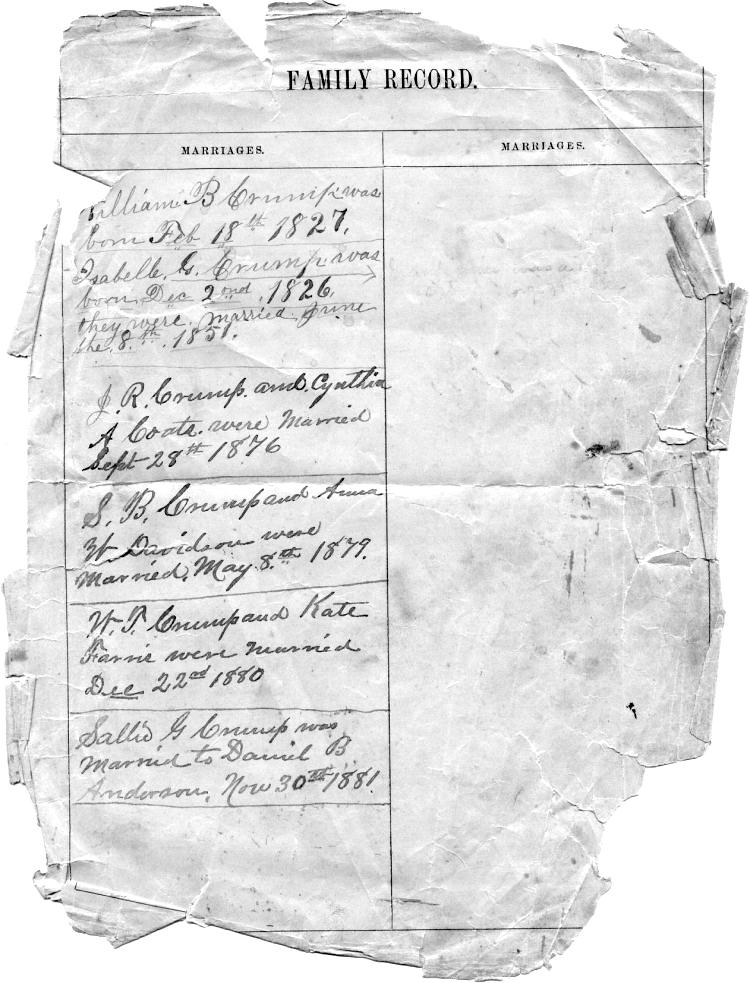 FAMILY RECORD.
MARRIAGES.
MARRIAGES.
William B Crump was
born Feb 18th 1827.
Isabelle. G. Crump. was
born. Dec 2nd. 1826.
they were. married. June
the. 8.th. 1851.
J. R. Crump. and. Cynthia
A Coats. were Married
Sept 28th 1876
S. B. Crump and Anna
W Davidson were
Married. May. 8.th 1879.
W. T. Crump and Kate
Farris were Married
Dec 22nd 1880
Sallie G Crump was
Married to Daniel B
Anderson, Nov 30th 1881